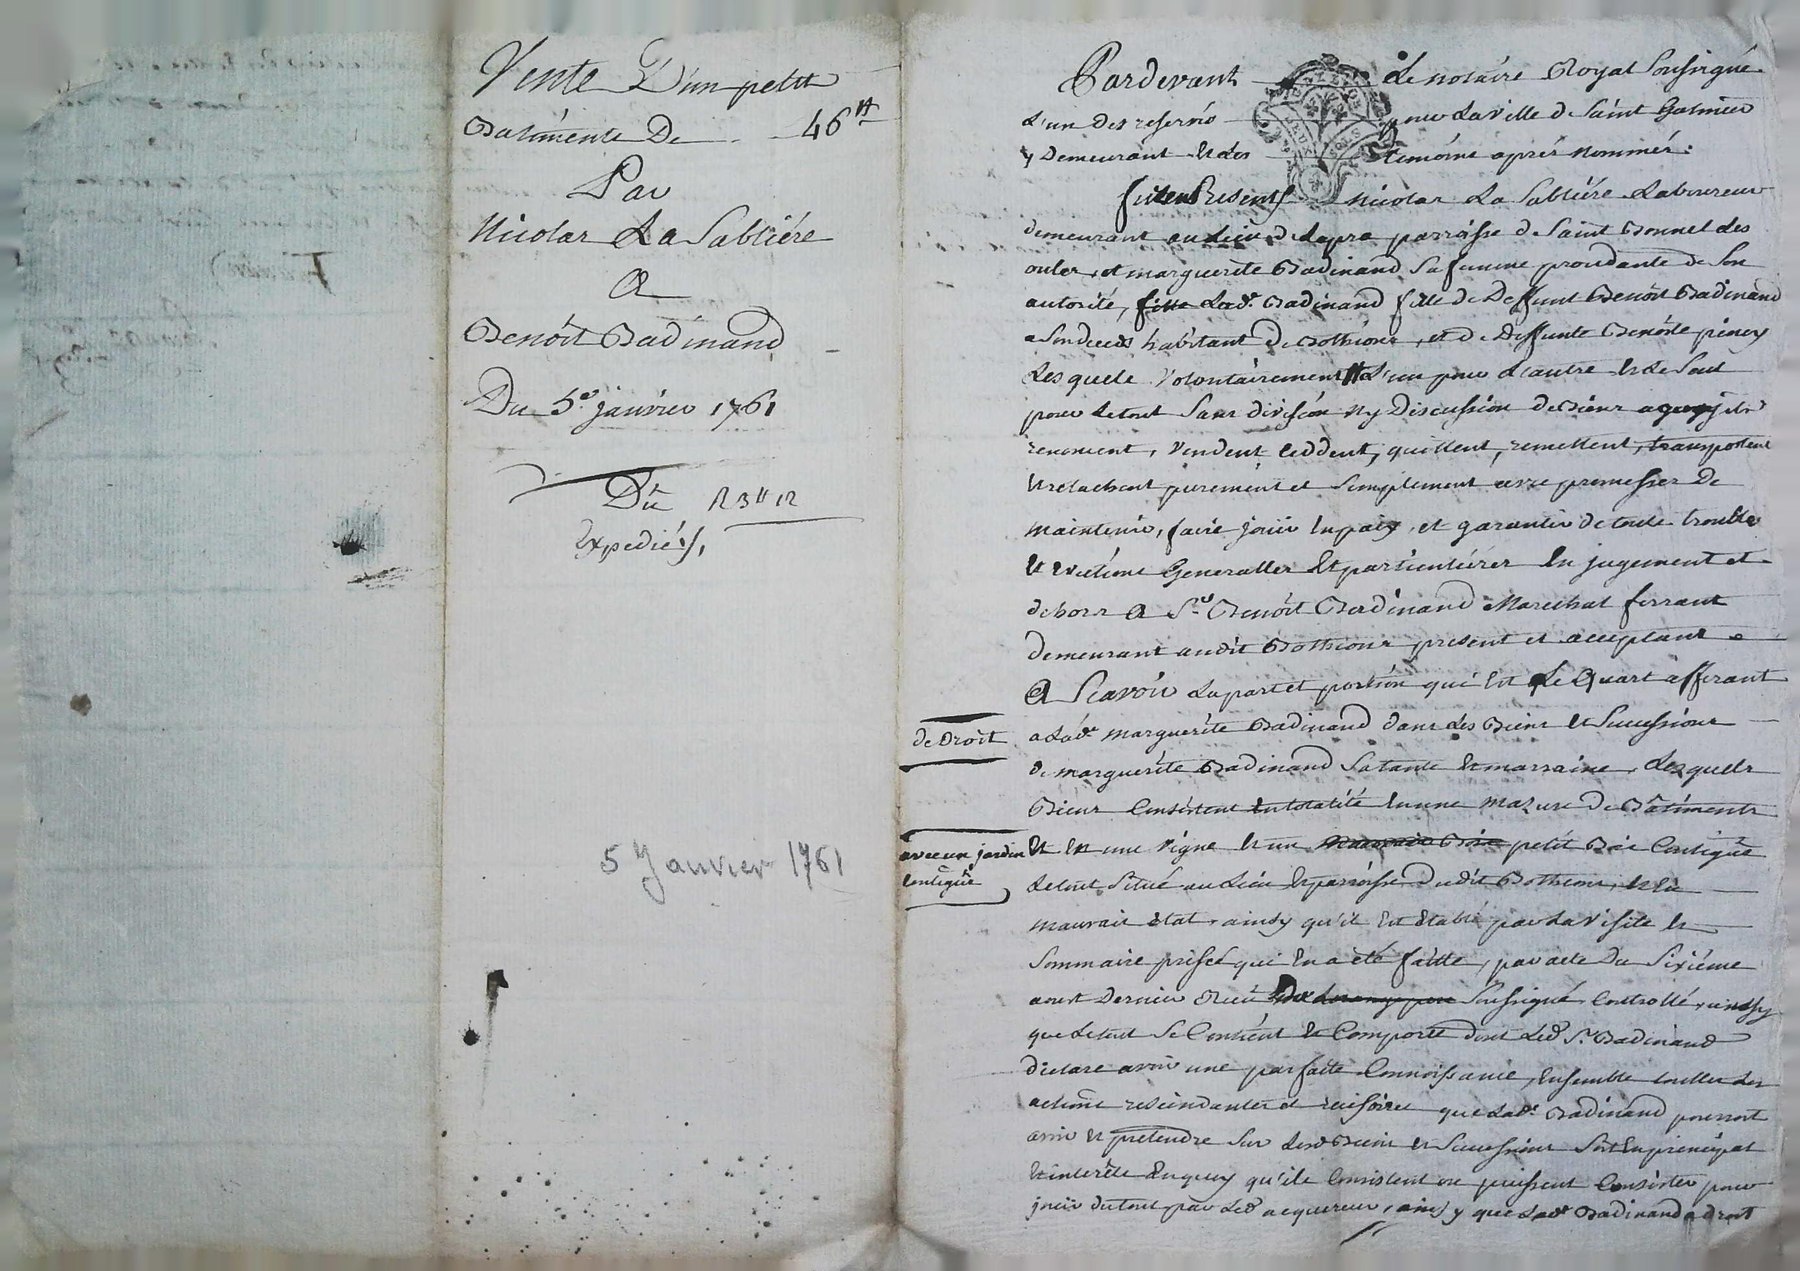 Vente D'un petit
Batiments De 46 ₶
Par
Nicolas La Sabliére
A
Benoit Badinand
Du 5e janvier 1761
Dû R 3 ₶ 12
Expediés,
5 Janvier 1761
Pardevant Le notaire Royal soussigné
L'un des reservés pour La ville de Saint Galmier
y Demeurant et les témoins aprés nommés:
furent Presents Nicolas La Sabliére Laboureur
demeurant au Lieu de Lapra parroisse de Saint Bonnet les
oules, et marguerite Badinand Sa femme procedante de Son
autorité, fille Lade Badinand fille de Deffunt Benoit Badinand
a Son deceds habitant de Bothéon, et de Deffunte Benoite
Lesquels Volontairement L'un pour L'autre et le Seul
pour Le tout Sans division ny Discussion de Biens a quoy ils
renoncent, Vendent Ceddent, quittent, remettent, transportent
et relachent purement et Simplement avec promesses De
maintenir, faire jouir en paix, et garantir de toute trouble
et evictions Generalles et particuliéres en jugement et
dehors A Sr Benoit Badinand Marechal ferrant
demeurant audit Bothéon present et acceptant
A Scavoir La part et portion qui est Le Quart afferant
de Droit
a Lade marguerite Badinand dans Les Biens et Successions
de marguerite Badinand Sa tante et marraine, Lesquels
Biens Consistent en totalité en une mazure de Bâtiments
avec un jardin
contigüe
et en une Vigne et un petit Bois Contigüe
Le tout Situé au Lieu et parroisse dudit Bothéon, et en
mauvais état, ainsy qu'il est établi par La Visite et
Sommaire prisée qui en a été faitte, par acte du Sixiéme
aoust Dernier Reçu Soussigné Controllé, ainsy
que Le tout Se Contient et Comporte dont Led. Sr Badinand
declare avoir une parfaite Connoissance, Ensemble touttes Les
actions rescindantes et rescisoires que Lade Badinand pourroit
avoir et pretendre Sur Lesd. Biens et Successions Soit en principal
et intérêts En quoy qu'ils Consistent ou puissent Consister pour
jouir du tout par Led. acquereur, ainsy que Lade Badinand a droit